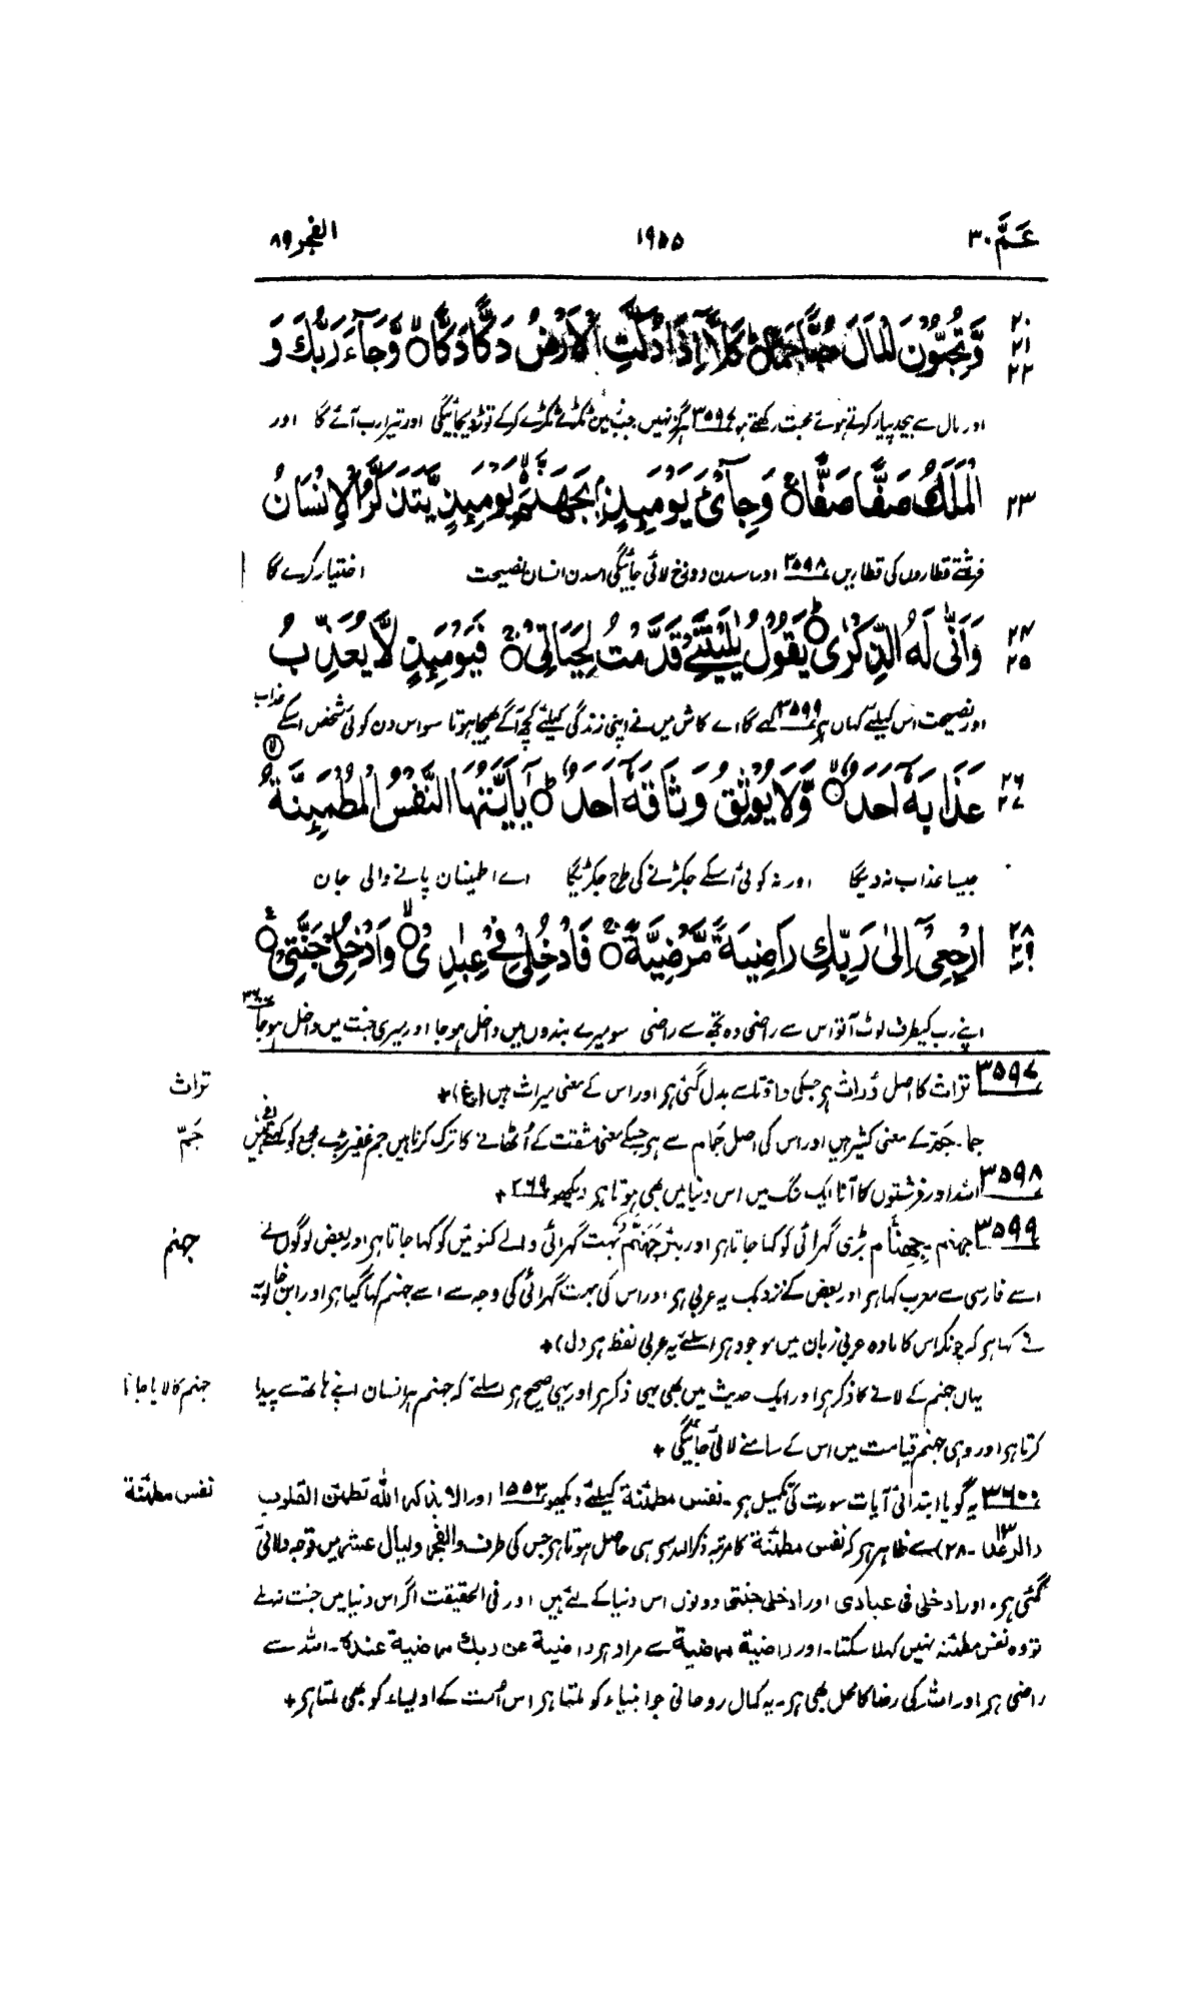 عَمَّ ٣٠ ١٩٥٥ الفجر ٨٩
٢٠ ٢١ ٢٢ وَّتُحِبُّوْنَ الْمَالَ حُبًّا جَمًّا كَلَّاۤ اِذَا دُكَّتِ الْاَرْضُ دَكًّا دَكًّا وَّجَآءَ رَبُّكَ وَ
اور مال سے بیحد پیار کرتے ہوئے محبت رکھتے ہو ٣٥٩٧ ہرگز نہیں جب زمین ٹکڑے ٹکڑے کرکے توڑ دیجائیگی اور تیرا رب آئے گا اور
٢٣ الْمَلَكُ صَفًّا صَفًّا وَجِايْٓءَ يَوْمَىِٕذٍۭ بِجَهَنَّمَ يَوْمَىِٕذٍ يَّتَذَكَّرُ الْاِنْسَانُ
فرشتے قطاروں کی قطاریں ٣٥٩٨ اور اسدن دوزخ لائی جائیگی اسدن انسان نصیحت اختیار کرے گا
٢٤ ٢٥ وَاَنّٰى لَهُ الذِّكْرٰى يَقُوْلُ يٰلَيْتَنِيْ قَدَّمْتُ لِحَيَاتِيْ فَيَوْمَىِٕذٍ لَّا يُعَذِّبُ
اور نصیحت اس کیلئے کہاں ہو ٣٥٩٩ کہے گا اے کاش میں نے اپنی زندگی کیلئے کچھ آگے بھیجا ہوتا سو اس دن کوئی شخص اسکے عذاب
٢٦ ٢٧ عَذَابَهٗٓ اَحَدٌ وَّلَا يُوْثِقُ وَثَاقَهٗٓ اَحَدٌ يٰٓاَيَّتُهَا النَّفْسُ الْمُطْمَىِٕنَّةُ
جیسا عذاب نہ دیگا اور نہ کوئی اسکے جکڑنے کی طرح جکڑیگا اے اطمینان پانے والی جان
٢٨ ٢٩ ارْجِعِيْٓ اِلٰى رَبِّكِ رَاضِيَةً مَّرْضِيَّةً فَادْخُلِيْ فِيْ عِبٰدِيْ وَادْخُلِيْ جَنَّتِيْ
اپنے رب کیطرف لوٹ آ تو اس سے راضی وہ تجھ سے راضی سو میرے بندوں میں داخل ہو جا اور میری جنت میں داخل ہو جا
٣٥٩٧ تراث کا اصل وُراث ہو جسکی واؤ تا سے بدل گئی ہو اور اس کے معنی میراث ہیں (غ)+ تراث
جما۔ جَمّ کے معنی کثیر ہیں اور اس کی اصل جَمام سے ہو جسکے معنی مشقت کے اُٹھانے کا ترک کرنا ہیں جم غفیر بڑے مجمع کو کہتے ہیں جَمّ
٣٥٩٨ اللہ اور فرشتوں کا آنا ایک رنگ میں اس دنیا میں بھی ہوتا ہو دیکھو ٢٦٩+
٣٥٩٩ جہنم۔ جِهِنّام بڑی گہرائی کو کہا جاتا ہو اور بئر جَهَنَّم بہت گہرائی والے کنوئیں کو کہا جاتا ہو اور بعض لوگوں نے جہنم
اسے فارسی سے معرب کہا ہو اور بعض کے نزدیک یہ عربی ہو اور اس کی بہت گہرائی کی وجہ سے اسے جہنم کہا گیا ہو اور ابن خالویہ
نے کہا ہو کہ چونکہ اس کا مادہ عربی زبان میں موجود ہو اسلئے یہ عربی لفظ ہو (ل)+
یہاں جہنم کے لانے کا ذکر ہو اور ایک حدیث میں بھی یہی ذکر ہو اور یہی صحیح ہو اسلئے کہ جہنم ہر انسان اپنے ہاتھ سے پیدا جہنم کا لایا جانا
کرتا ہو اور وہی جہنم قیامت میں اس کے سامنے لائی جائیگی+
٣٦٠٠ یہ گویا ابتدائی آیات سورت کی تکمیل ہو۔ نفس مطمئنۃ کیلئے دیکھو ١٥٥٣ اور الا بذکر اللہ تطمئن القلوب نفس مطمئنۃ
(الرعد ١٣۔ ٢٨) سے ظاہر ہو کہ نفس مطمئنۃ کا مرتبہ ذکر اللہ سے ہی حاصل ہوتا ہو جس کی طرف والفجر ولیال عشر میں توجہ دلائی
گئی ہو۔ اور ادخلی فی عبادی اور ادخلی جنتی دونوں اس دنیا کے لئے ہیں اور فی الحقیقت اگر اس دنیا میں جنت نہ ملے
تو وہ نفس مطمئنہ نہیں کہلا سکتا۔ اور راضیۃ مرضیۃ سے مراد ہو راضیۃ عن ربک مرضیۃ عندہ۔ اللہ سے
راضی ہو اور اللہ کی رضا کا محل بھی ہو۔ یہ کمال روحانی جو انبیاء کو ملتا ہو اس اُمت کے اولیاء کو بھی ملتا ہو+